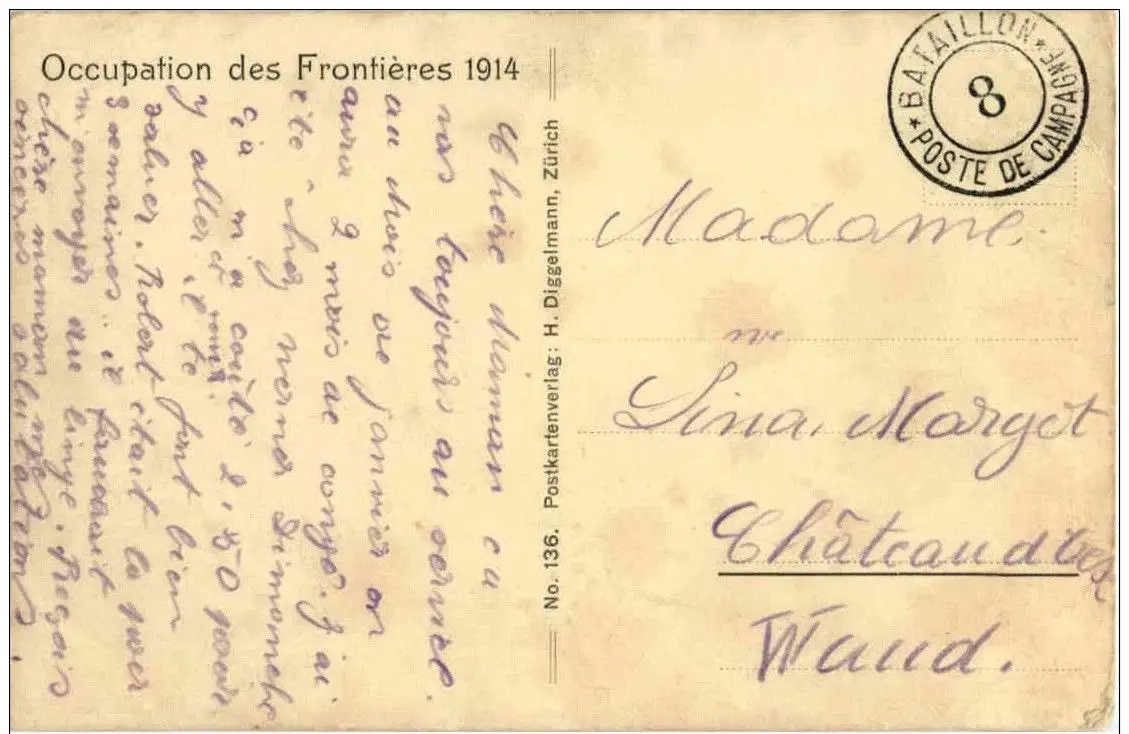 Occupation des Frontières 1914
Chère Maman ca
vas toujours au servise.
au mois de Janvier on
aura 2 mois de congé. J'ai
été chez Dimanche
ça m'a coûté 2,50 pour
y aller. et
il te font bien
saluer. Robert était là pour
3 semaines. il faudrait
m'envoyer du linge. Reçois
chère maman mes
sincères salutations.
No. 136. Postkartenverlag: H. Diggelmann, Zürich
* BATAILLON * POSTE DE CAMPAGNE
8
Madame.
Lina, Margot
Château d'Oex
Waud.